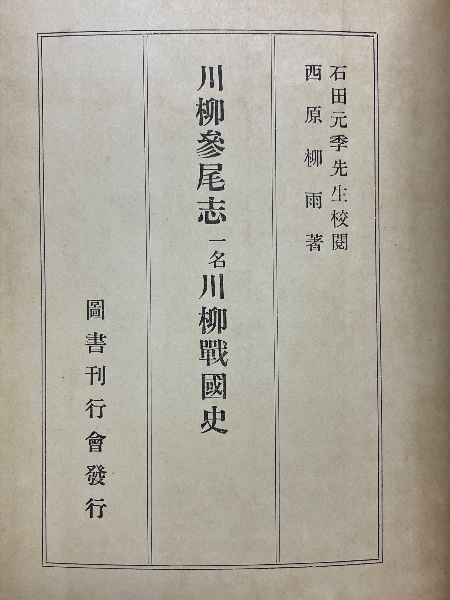 石田元季先生校閲
西原柳雨著
川柳參尾志一名川柳戰國史
圖書刊行會發行